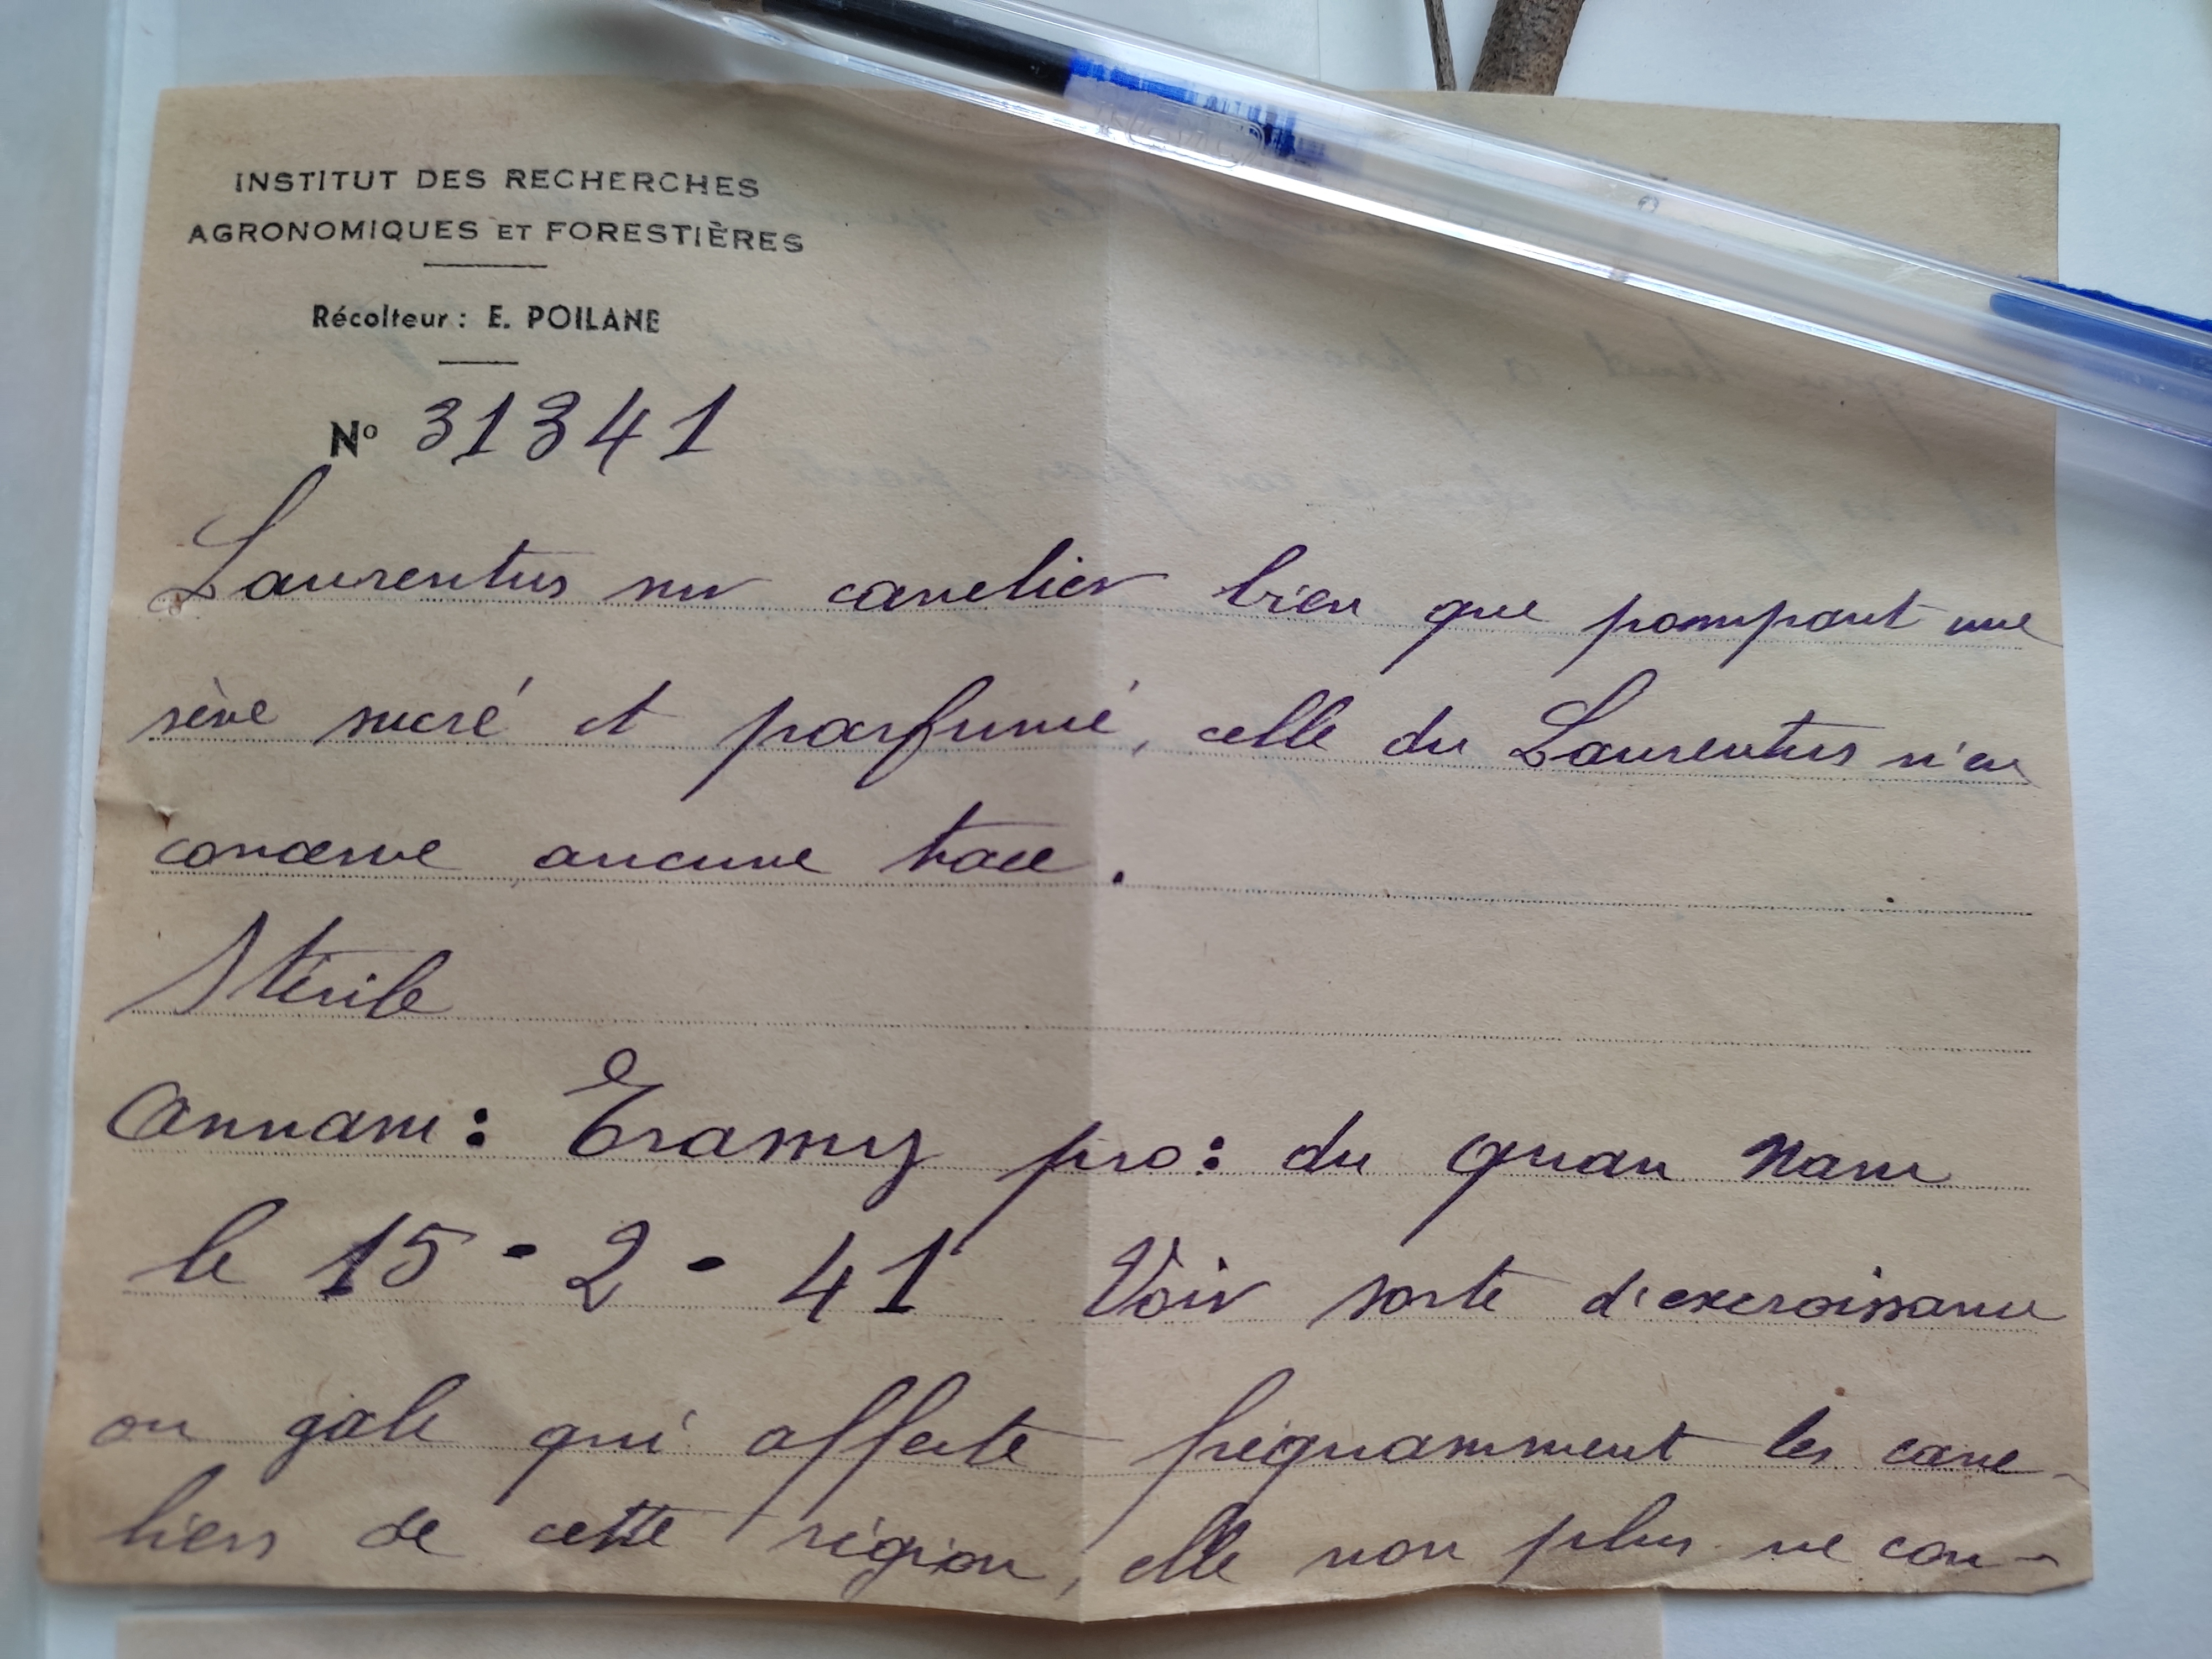 INSTITUT DES RECHERCHES
AGRONOMIQUES ET FORESTIÈRES
Récolteur : E. POILANE
No 31341
Laurentus sur canelier bien que pompant une
sève sucré et parfumé, celle du Laurentus n'en
conserve aucune trace.
Stérile
Annam: Tramy pro: du Quan Nam
le 15-2-41 Voir sorte d'excroissance
ou gale qui affecte fréquamment les cane-
liers de cette région, elle non plus ne con-